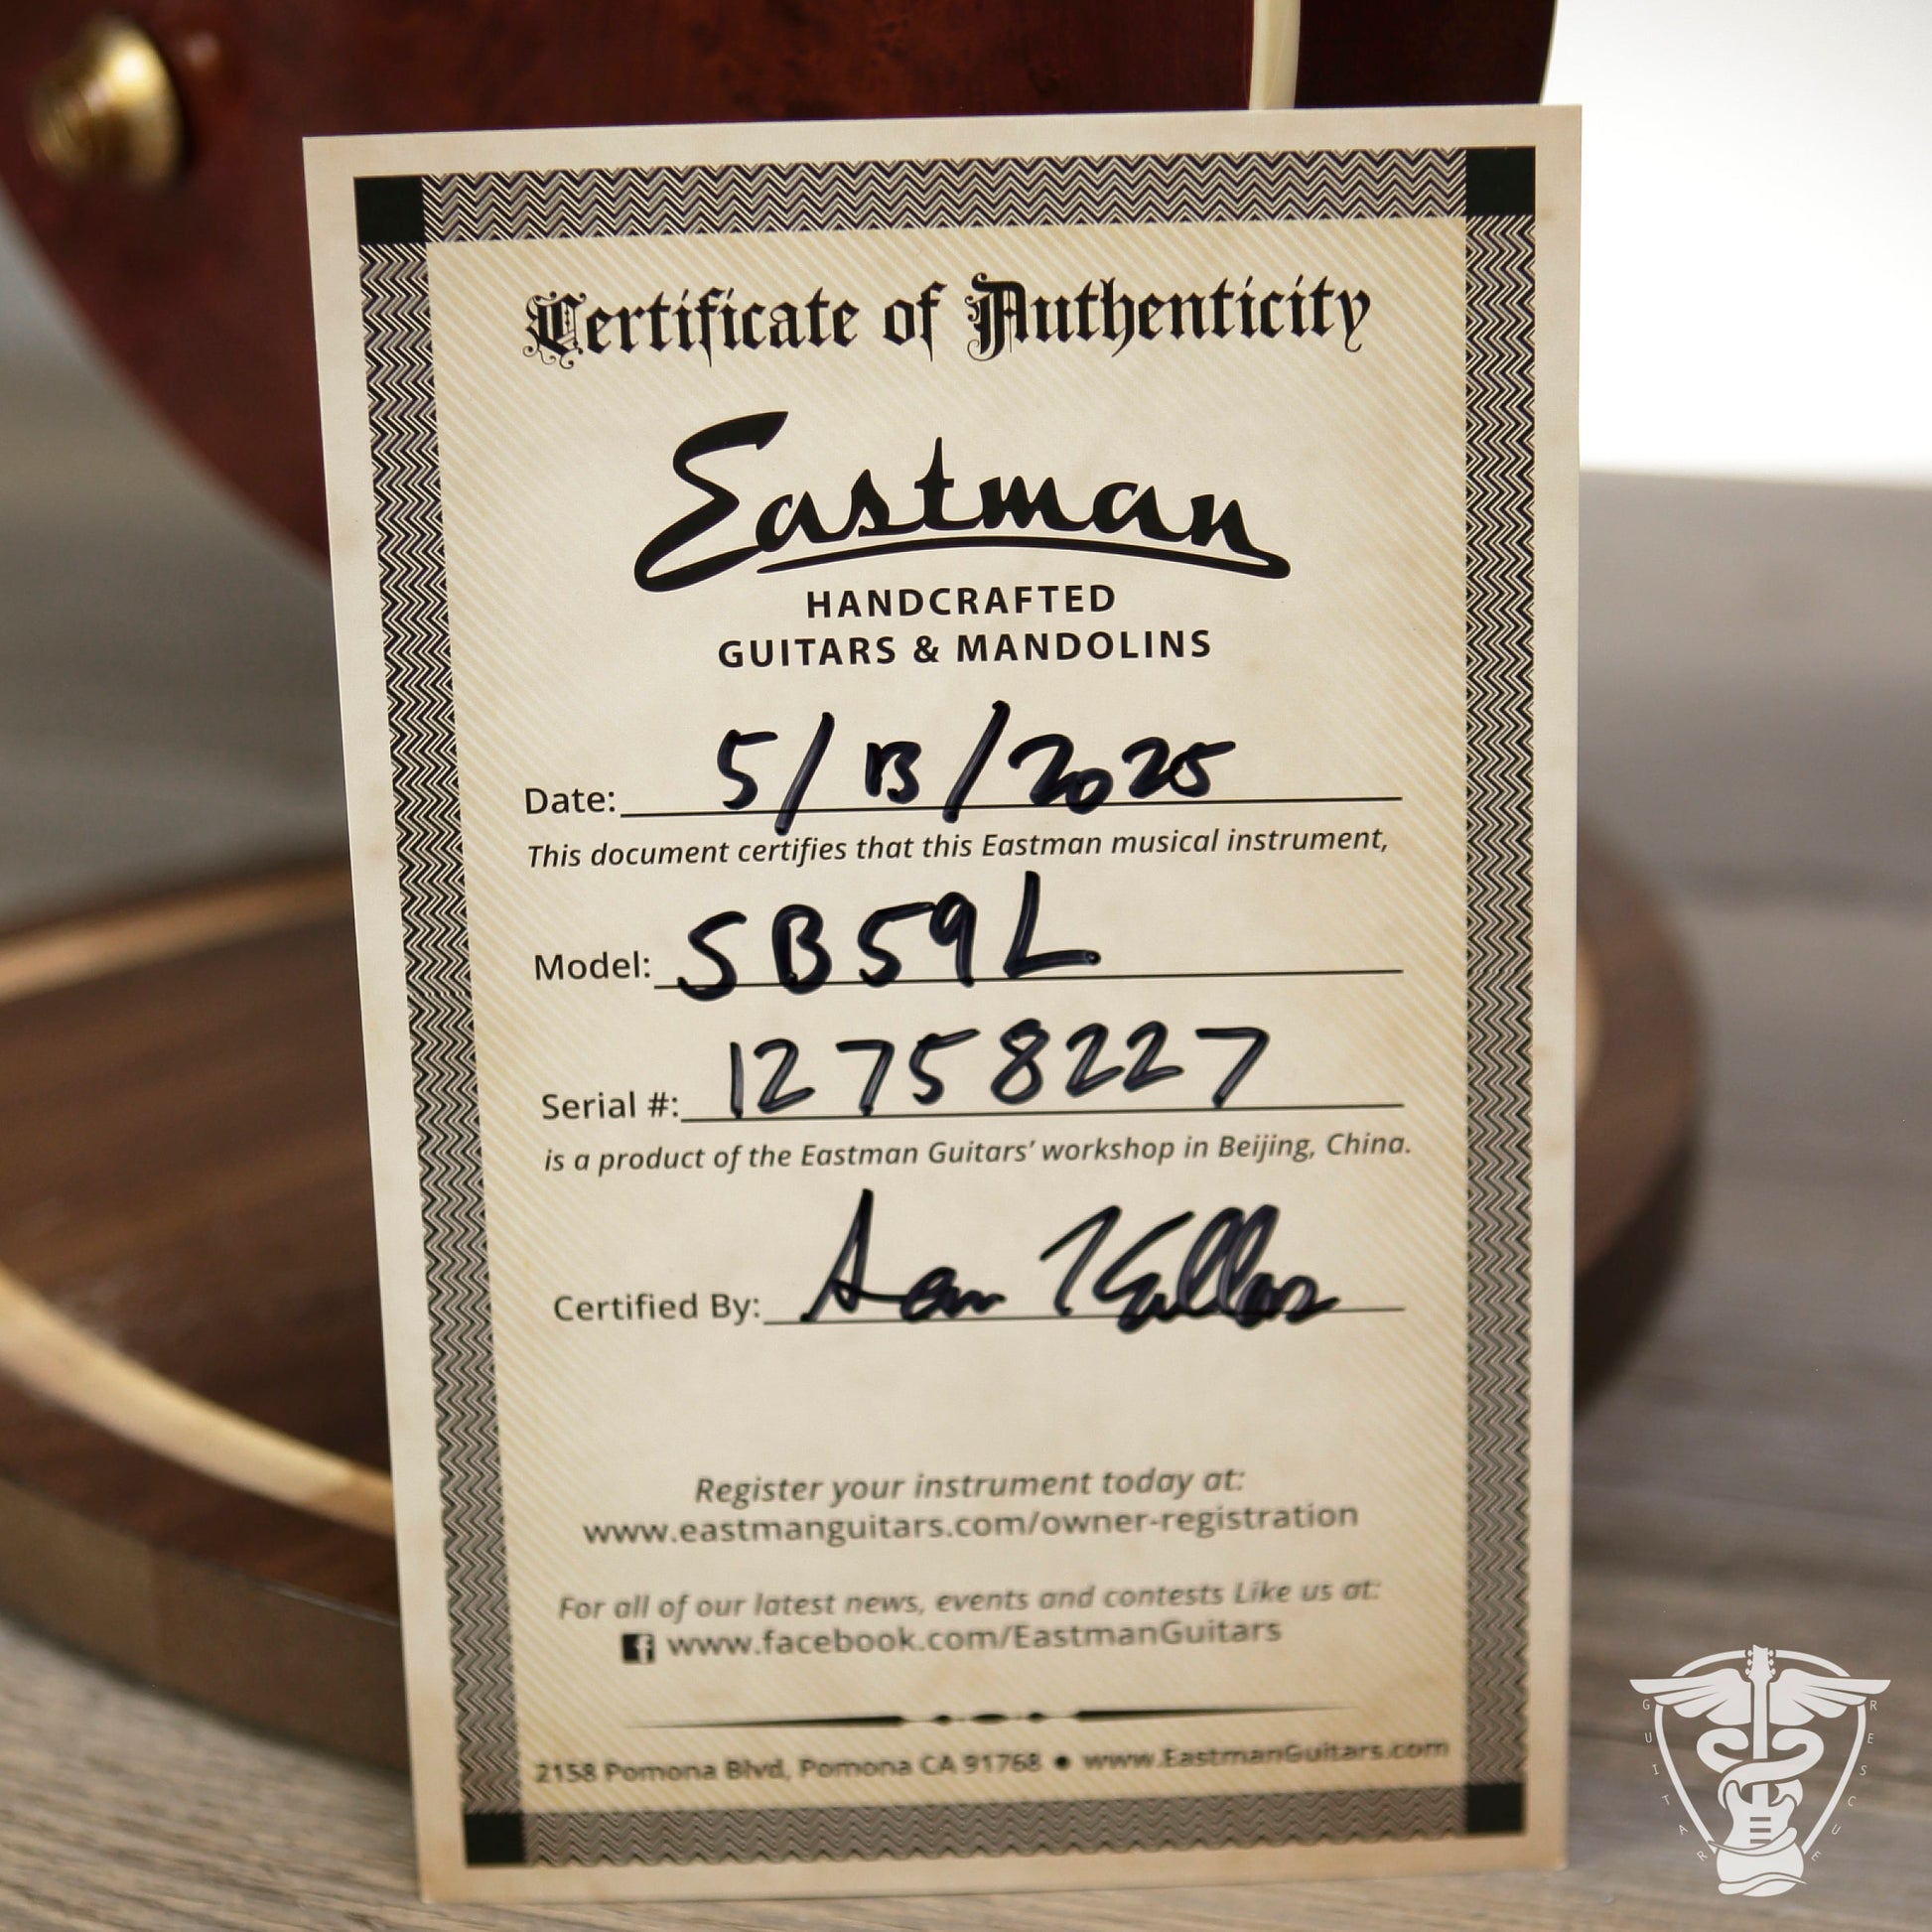 Certificate of Authenticity
Eastman
HANDCRAFTED
GUITARS & MANDOLINS
Date: 5/13/2025
This document certifies that this Eastman musical instrument,
Model: SB59L
Serial #: 12758227
is a product of the Eastman Guitars’ workshop in Beijing, China.
Certified By:
Register your instrument today at:
www.eastmanguitars.com/owner-registration
For all of our latest news, events and contests Like us at:
www.facebook.com/EastmanGuitars
2158 Pomona Blvd, Pomona CA 91768 ● www.EastmanGuitars.com
GUITAR RESCUE